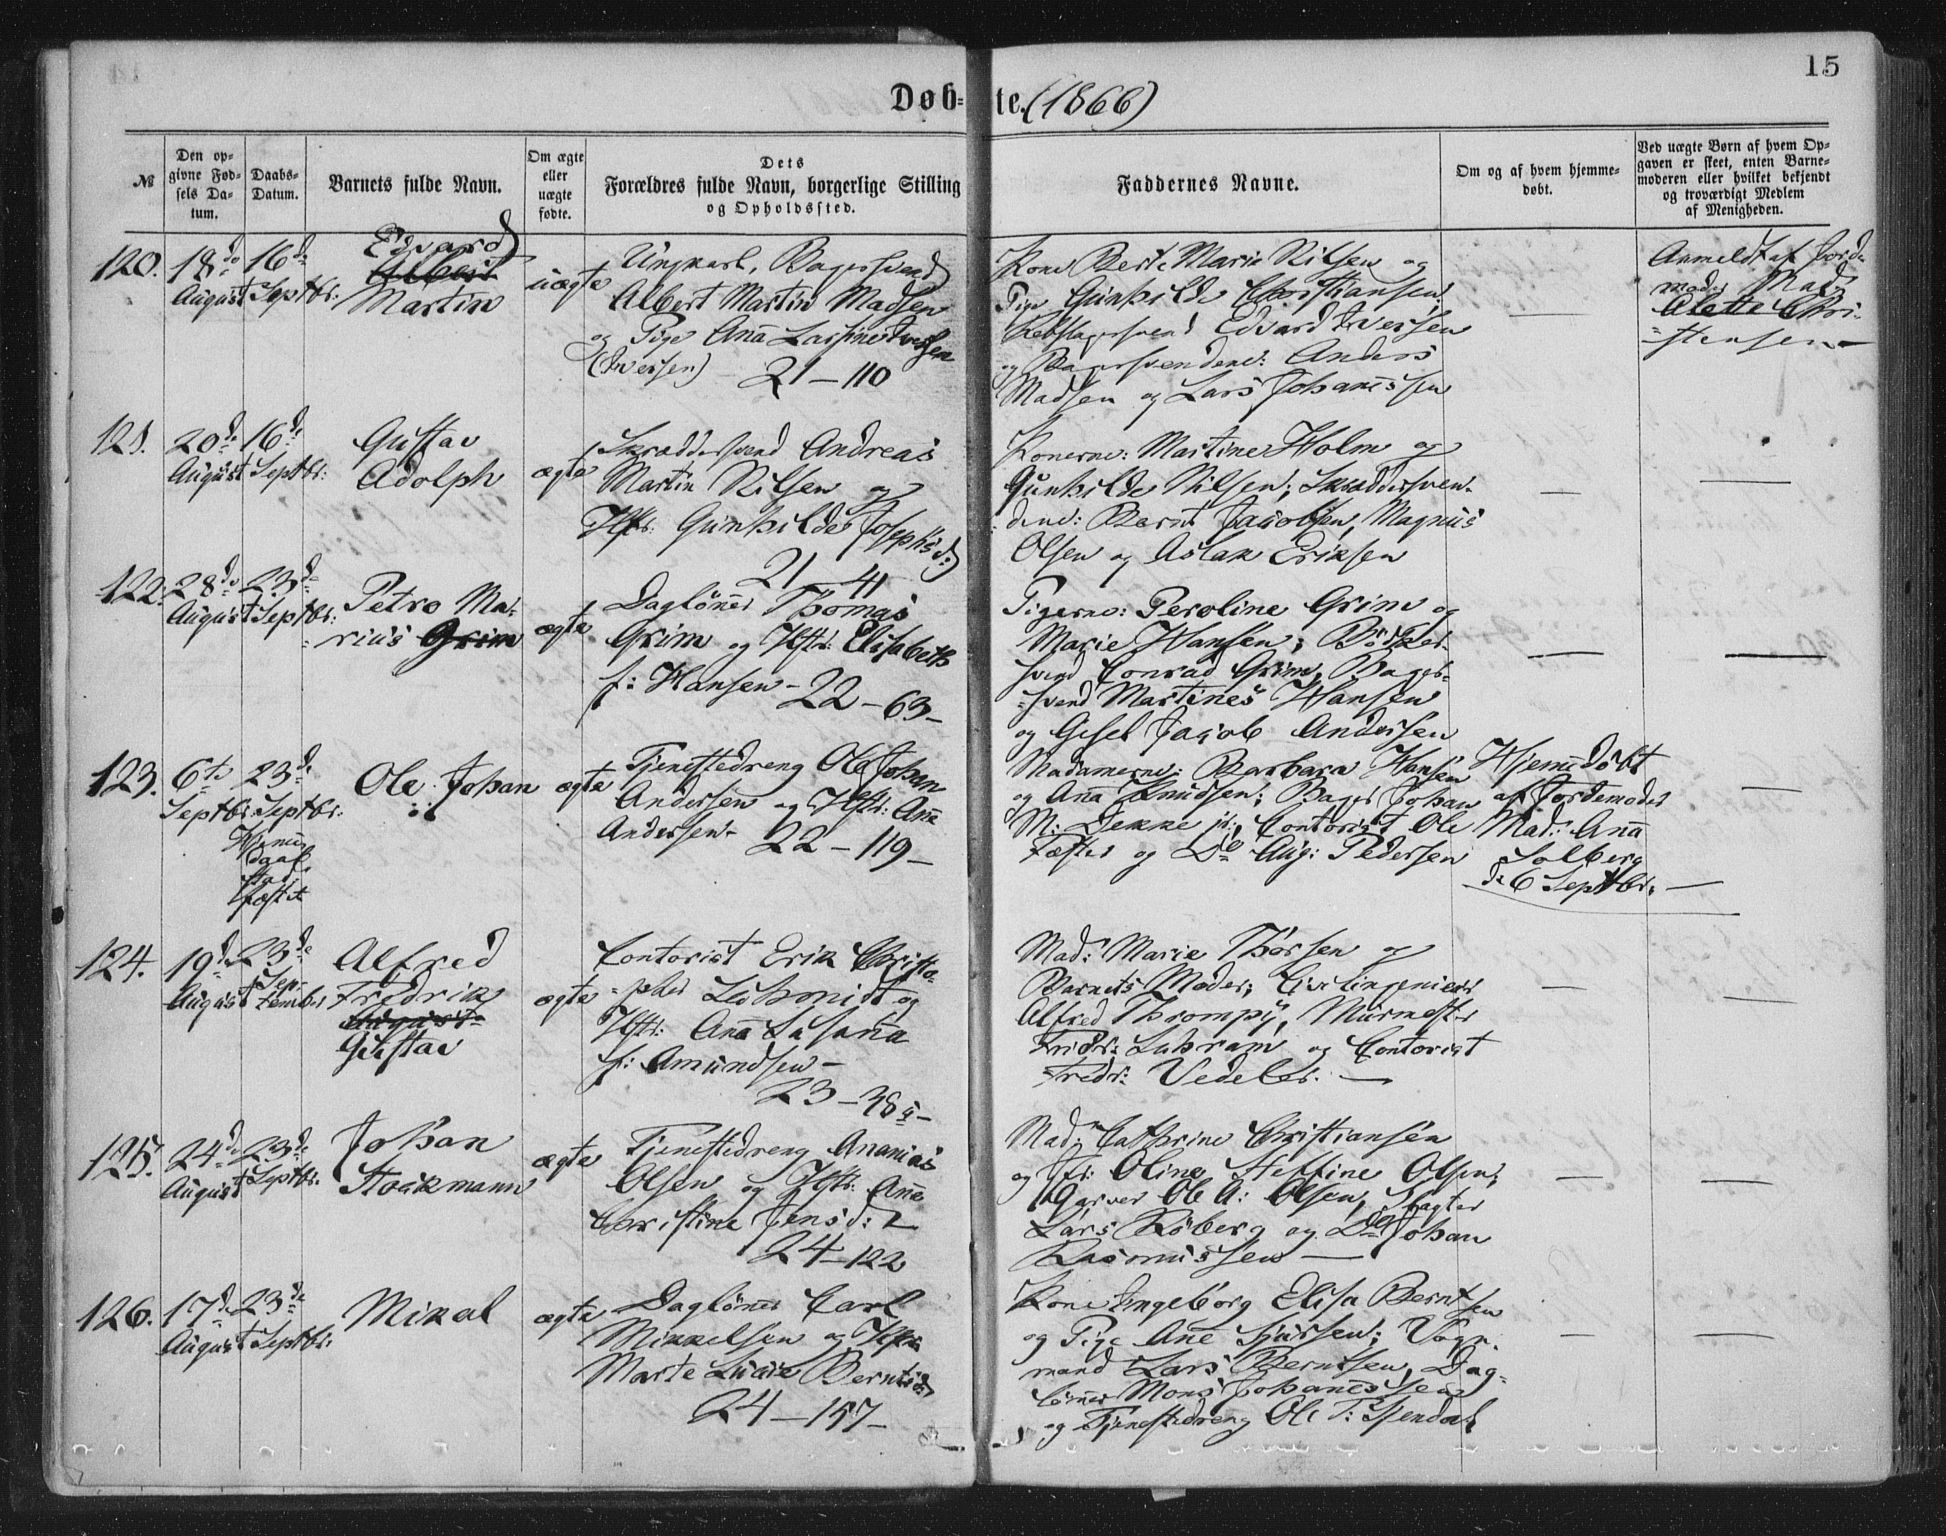 15
Døb-te. (1866)
№
Den op-
givne Fød-
sels Da-
tum.
Daabs-
Datum.
Barnets fulde Navn.
Om ægte
eller
uægte
fødte.
Dets
Forældres fulde Navn, borgerlige Stilling
og Opholdssted.
Faddernes Navne.
Om og af hvem hjemme-
døbt.
Ved uægte Børn af hvem Op-
gaven er skeet, enten Barne-
moderen eller hvilket bekjendt
og troværdigt Medlem
af Menigheden.
120.
18de
August
16de
Septbr:
Edvard
Albert
Martin
uægte
Ungkarl, Bagersvend
Albert Martin Madsen
og Pige Ana Lassine Iversen
(Iversen) 21-110
Kone Berte Marie Nilsen og
Pige Gunhilde Christiansen;
Rebslagersvend Edvard Iversen
og Bagersvendene: Anders
Madsen og Lars Johanessen
Anmeldt af Jorde-
moder Mad:
Alette Chri-
stensen
121.
20de
August
16de
Septbr:
Gustav
Adolph
ægte
Skræddersvend Andreas
Martin Nilsen og
Hstr: Gunhilde Josephsd:
21-41
Konerne: Martine Holm og
Gunhilde Nilsen; Skræddersven-
dene: Bernt Jacobsen, Magnus
Olsen og Aslak Eriksen
122.
28de
August
23de
Septbr:
Petro Ma-
rius Grim
ægte
Daglönner Thomas
Grim og Hstr: Elisabeth
f: Hansen - 22-63-
Pigerne: Peroline Grim og
Marie Hansen; Bödker-
svend Conrad Grim, Bager-
svend Martines Hansen
og Gesel Jacob Andersen
123.
6te
Septbr:
23de
Septbr:
Ole Johan
ægte
Tjenestedreng Ole Johan
Andersen og Hstr: Ane
Andersen - 22-119-
Madamerne: Barbara Hansen
og Ana Knudsen; Bager Johan
M: Dekke jr:, Contorist Ole
Fæster og Do Aug: Pedersen
Hjemedöbt
af Jordemoder
Mad: Ana
Solberg
d: 6 Septbr:
124.
19de
August
23de
Sep-
tember
Alfred
Fredrik
August
Gustav
ægte
Contorist Erik Christo-
pher og
Hstr: Ana Susana
f: Amundsen -
23-38 -
Mad: Marie Thorsen og
Barnets Moder; Civilingeniör
Alfred Murmester
Fridr: og Contorist
Fredr: Vedeler.
125.
24de
August
23de
Septbr.
Johan
Stockmann
ægte
Tjenestedreng Ananias
Olsen og Hstr: Ane
Christine Jensd:
24-122
Mad: Cathrine Christiansen
og Jfr: Oline Steffine Olsen;
Garver Ole A: Olsen, Slagter
Lars Röberg og Do Johan
Rasmussen
126.
17de
August
23de
Septbr.
Mikal
ægte
Daglönner Carl
Mikkelsen og Hstr:
Marte Lucie Berntsd:
24-157-
Kone Ingeborg Elisa Berntsen
og Pige Ane Sjursen; Vogn-
mand Lars Berntsen, Dag-
lönner Mons Johanessen
og Tjenestedreng Ole T: